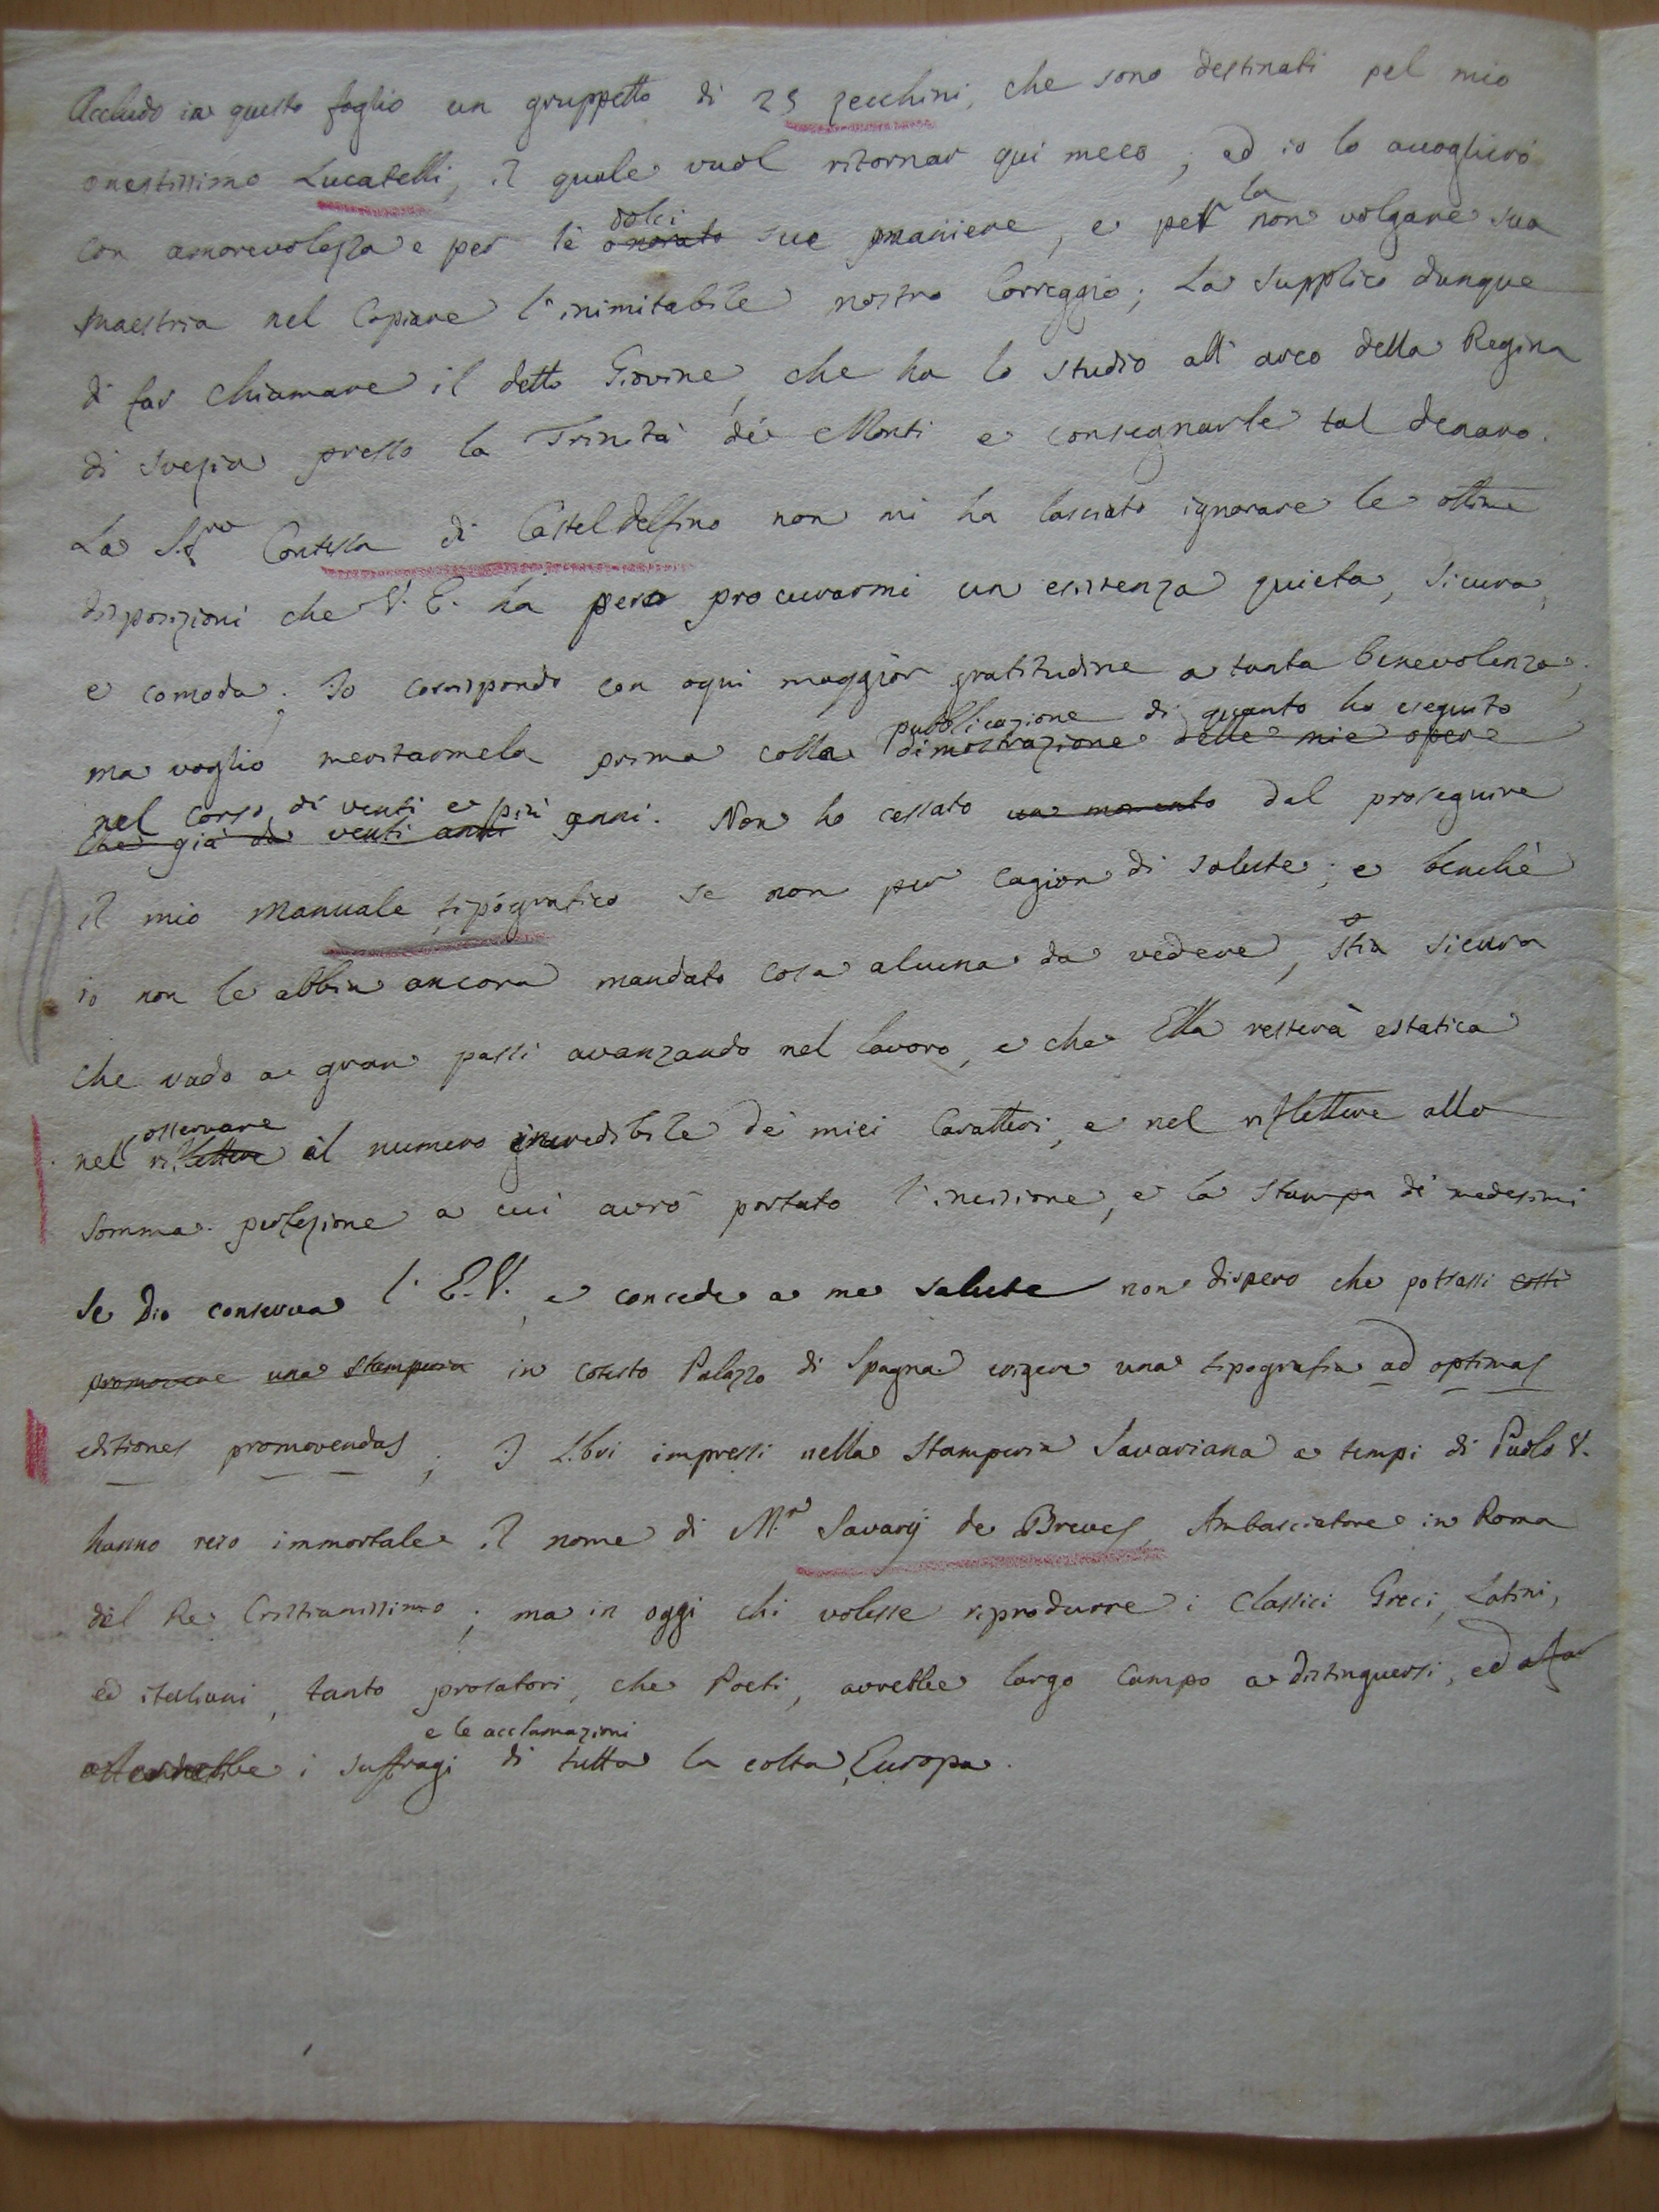 Accludo in questo foglio un gruppetto di 25 zecchini, che sono destinati pel mio
onestissimo Lucatelli, il quale vuol ritornar qui meco; ed io lo accoglierò
dolci la
con amorevolezza e per le onorate sue maniere, e per non volgare sua
maestria nel Copiare l'inimitabile nostro Correggio; La supplico dunque
di far chiamare il detto Giovine, che ha lo studio all'arco della Regina
di Svezia presso la Trinità de' Monti e consegnarle tal denaro.
La S.ra Contessa di Casteldelfino non mi ha lasciato ignorare le ottime
disposizioni che V. E. ha per procurarmi un esistenza quieta, sicura,
e comoda. Io corrispondo con ogni maggior gratitudine a tanta benevolenza;
pubblicazione di quanto ho eseguito
ma voglio meritarmela prima colla dimostrazione delle mie opere
nel corso di venti e più
che già da venti anni anni. Non ho cessato un momento dal proseguire
il mio Manuale tipografico se non per cagion di salute; e benchè
io non le abbia ancora mandato cosa alcuna da vedere, stia sicura
che vado a gran passi avanzando nel lavoro, e che Ella resterà estatica
osservare
nel riflettere il numero incredibile de' miei Caratteri, e nel riflettere alla
somma perfezione a cui avrò portato l'incisione, e la stampa de' medesimi
Se Dio conserva l' E.V. e concede a me salute non dispero che potrassi costì
promovere una stamperia in cotesto Palazzo di Spagna erigere una tipografia ad optimas
editiones promovendas; I Libri impressi nella Stamperia Savariana a tempi di Paolo V.
hanno reso immortale il nome di M.r Savary de Breves, Ambasciatore in Roma
del Re Cristianissimo; ma in oggi chi volesse riprodurre i Classici Greci, Latini,
ed italiani, tanto prosatori, che Poeti, avrebbe largo campo a distinguersi, ed
e le acclamazioni
i suffragi di tutta la colta Europa.